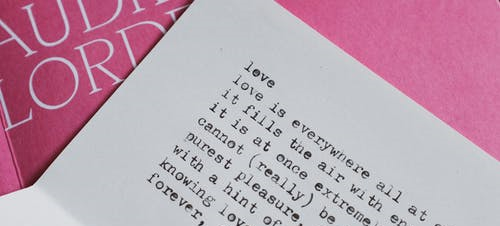 AUD
LORD
love
love is everywhere all at
it fills the air with en
it is at once extreme
cannot (really) be
purest pleasure,
with a hint of
knowing lov
forever,